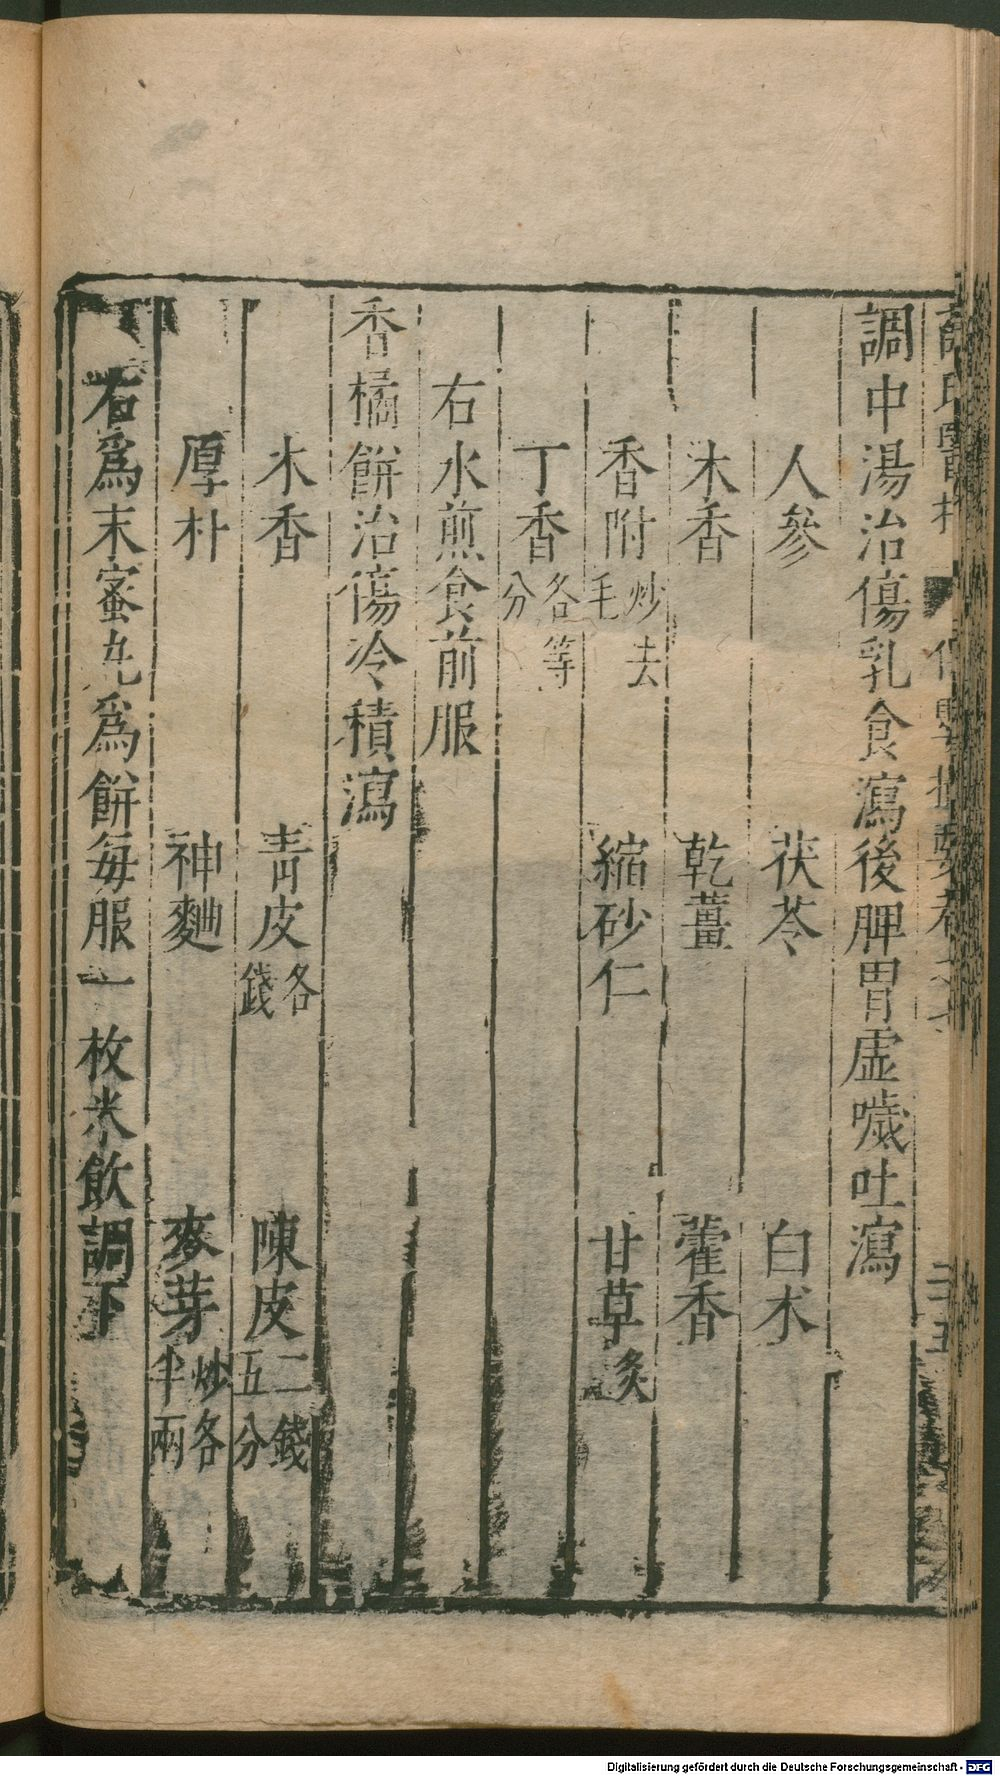 調中湯治傷乳食瀉後脾胃虛噦吐瀉
人參 茯苓 白朮
木香 乾薑 藿香
香附炒去毛 縮砂仁 甘草炙
丁香各等分
右水煎食前服
香橘餅治傷冷積瀉
木香 青皮各錢 陳皮二錢五分
厚朴 神麯 麥芽炒各半兩
右為末蜜丸為餅每服一枚米飲調下
Digitalisierung gefördert durch die Deutsche Forschungsgemeinschaft - DFG